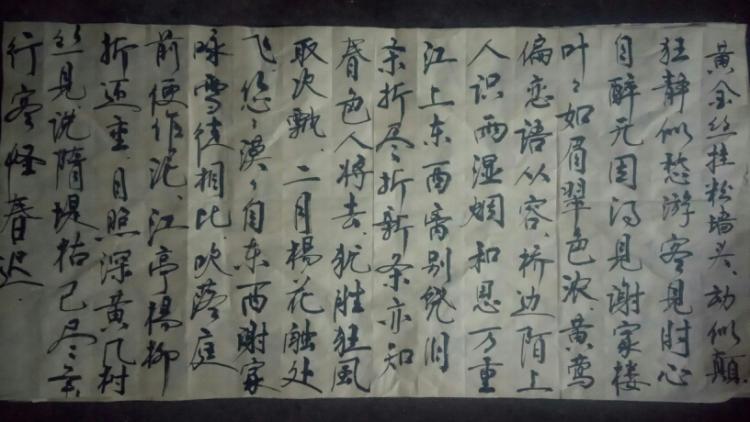 黄金丝挂粉墙头、动似颠
狂静似愁游客见时心
自醉无因得见谢家楼
叶々如眉翠色浓黄莺
偏恋语从容、桥边陌上
人识雨湿烟和思万重
江上东西离别饶旧
条折尽折新条亦知
春色人将去犹胜狂风
取次飘、二月杨花触处
飞、悠々漠々自东西谢家
咏雪徒相比吹落庭
前便作泥、江亭杨柳
折还垂、月照深黄几树
丝见说隋堤枯已尽年
行客怪春迟.